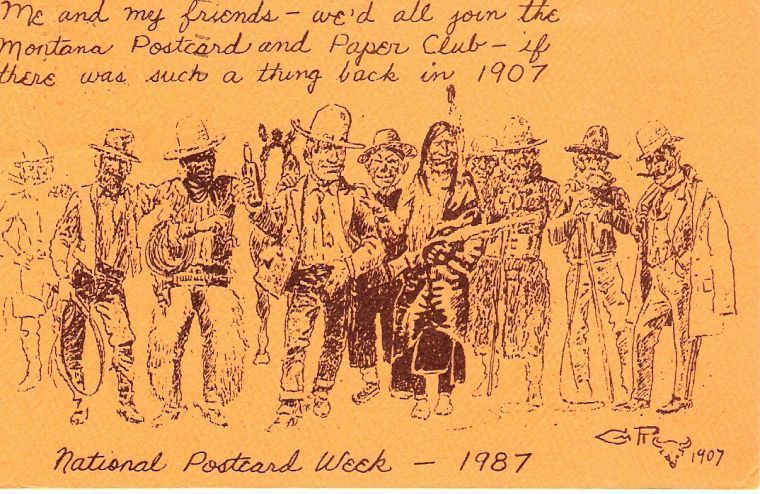 Me and my friends - we'd all join the
Montana Postcard and Paper Club - if
there was such a thing back in 1907
National Postcard Week - 1987
1907